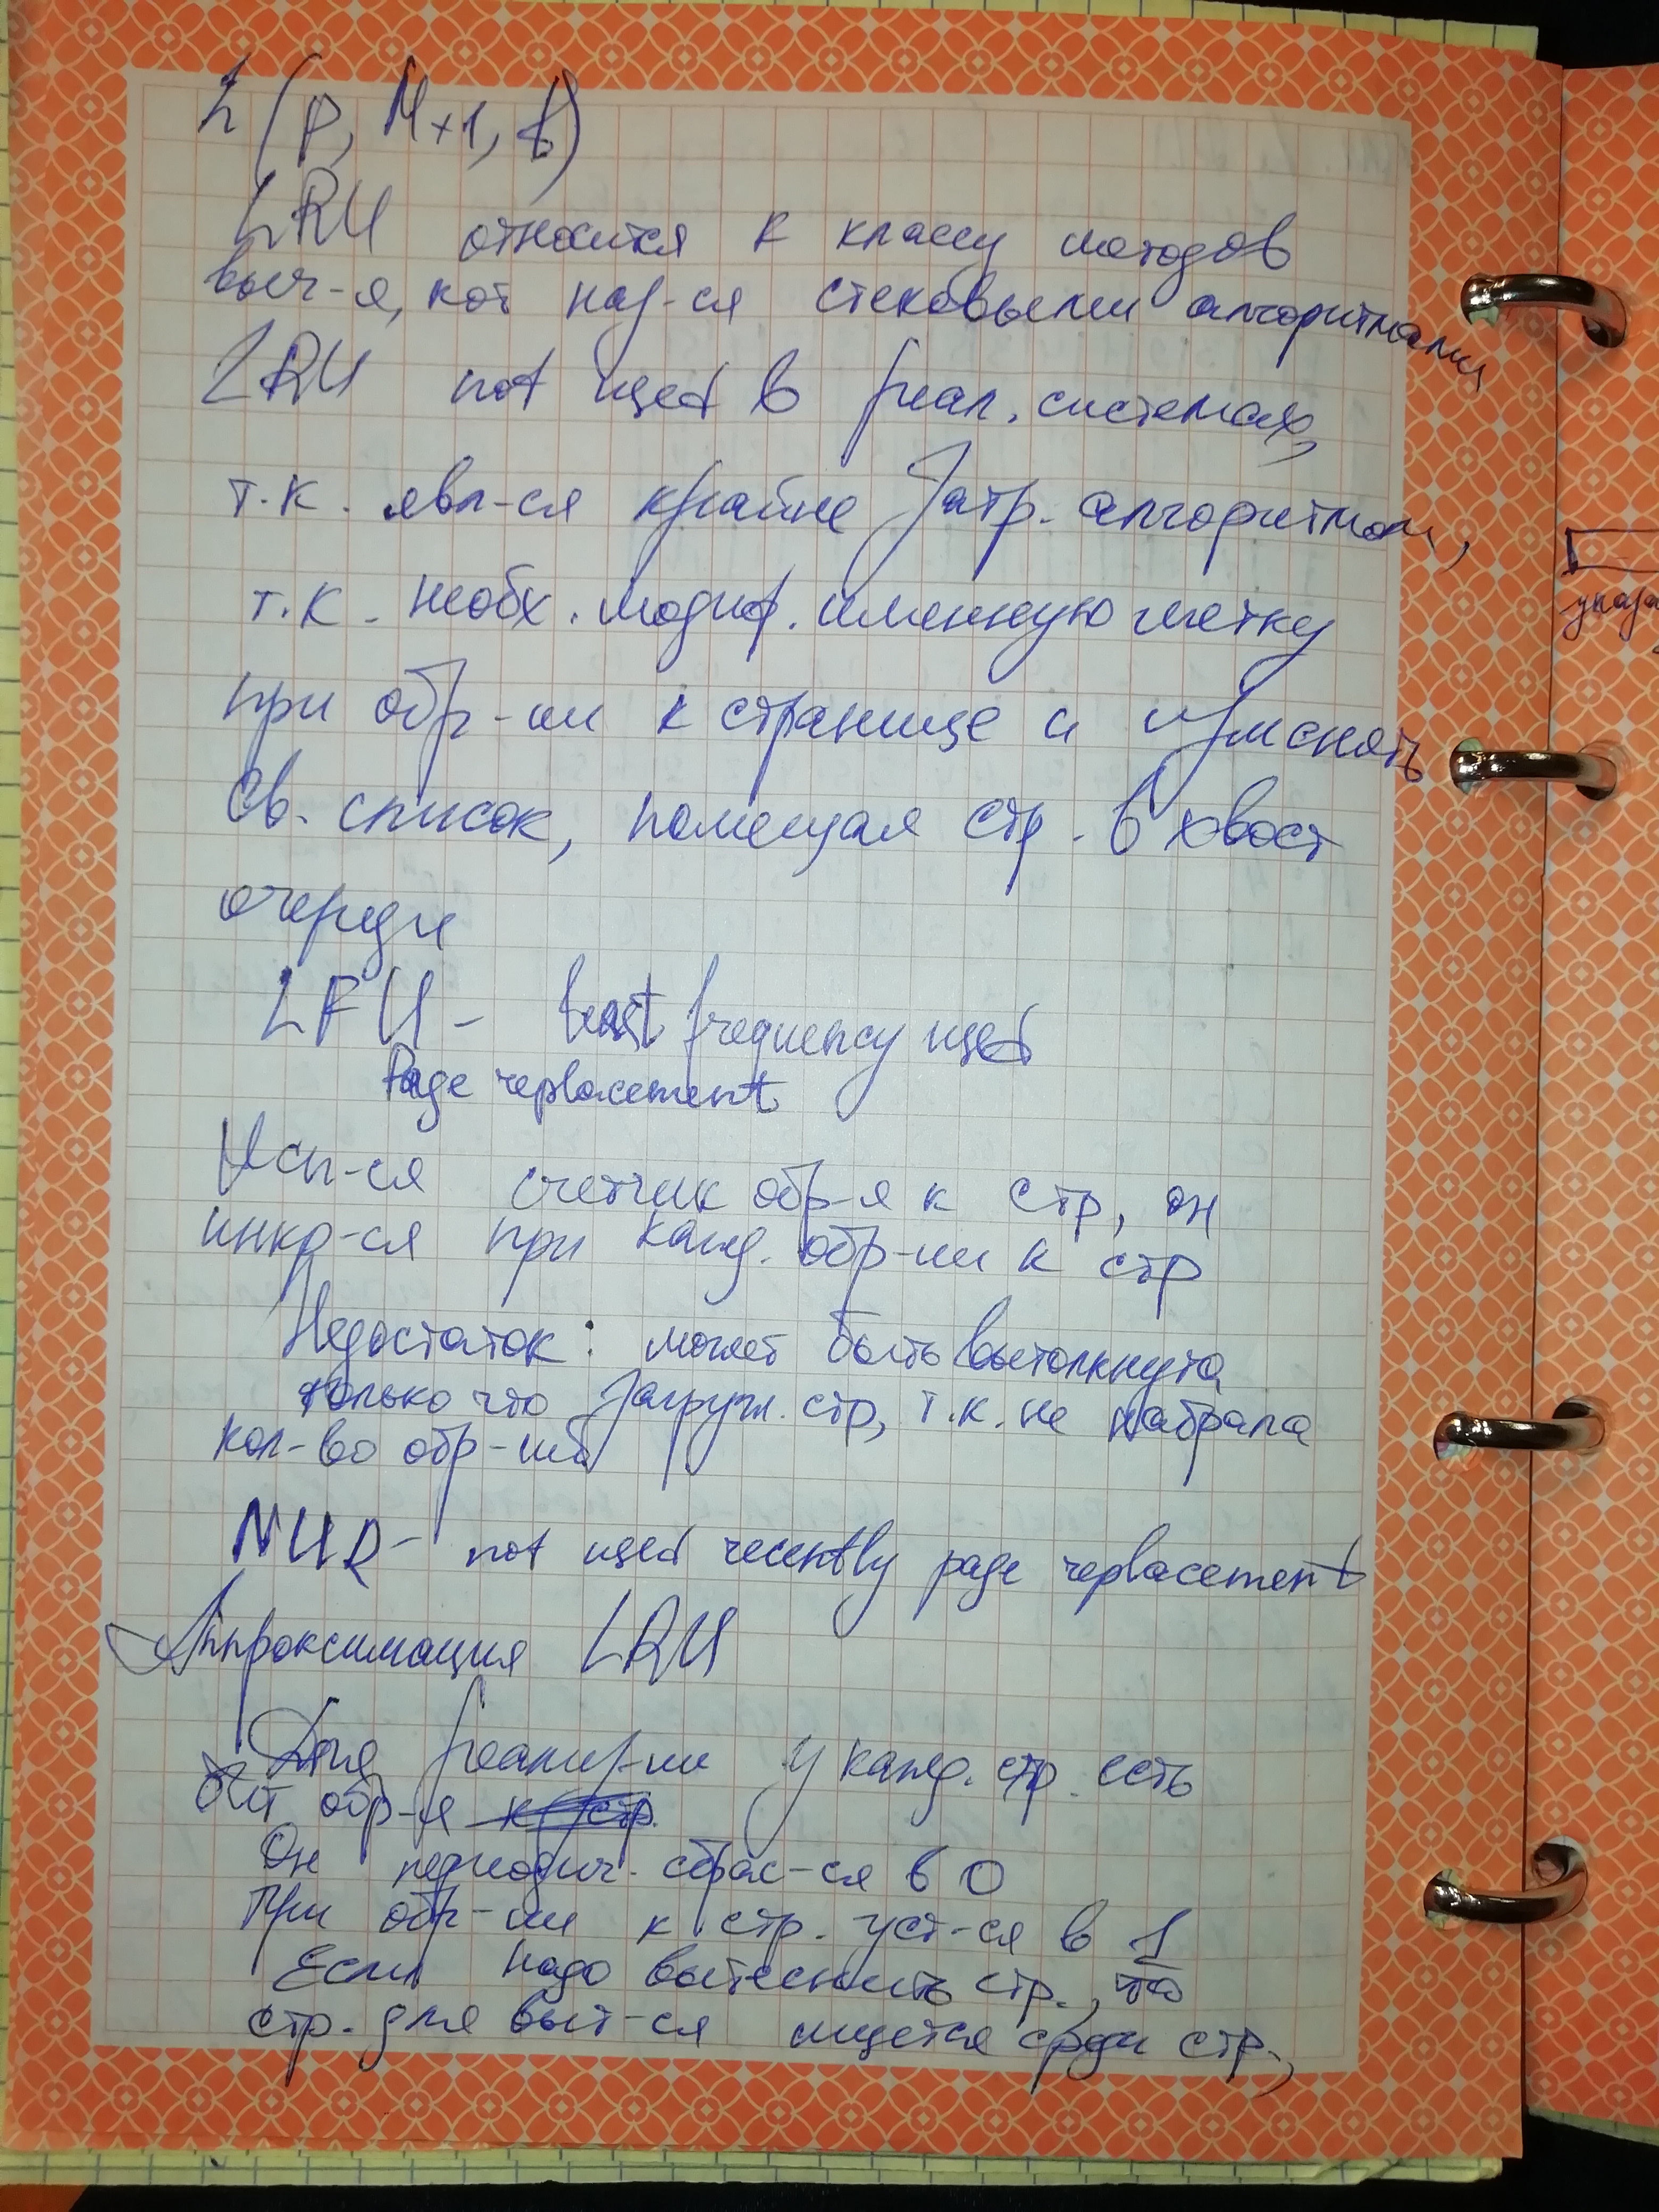 (p, M+1, t)
LRU относится к классу методов
выт-я, кот наз-ся стековыми алгоритмами
LRU not used в реал. системах,
т.к. явл-ся крайне затр. алгоритмом,
т.к. необх. модиф. временную метку
при обр-ии к странице и изменять
св. список, помещая стр. в хвост
очереди
LFU - least frequency used
Page replacement
Исп-ся счетчик обр-я к стр, он
инкр-ся при кажд. обр-ии к стр
Недостаток: может быть вытолкнута
только что загруж. стр, т.к. не набрала
кол-во обр-ий
NUR - not used recently page replacement
Аппроксимация LRU
Для реализ-ии у кажд. стр. есть
бит обр-я
Он периодич. сбрас-ся в 0
При обр-ии к стр. уст-ся в 1
Если надо вытеснить стр., то
стр. для выт-ся ищется среди стр.,
указа